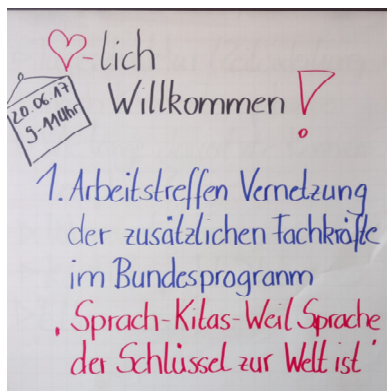 ♡-lich
Willkommen!
20.06.17
9-11Uhr
1. Arbeitstreffen Vernetzung
der zusätzlichen Fachkräfte
im Bundesprogramm
, Sprach-Kitas-Weil Sprache
der Schlüssel zur Welt ist '